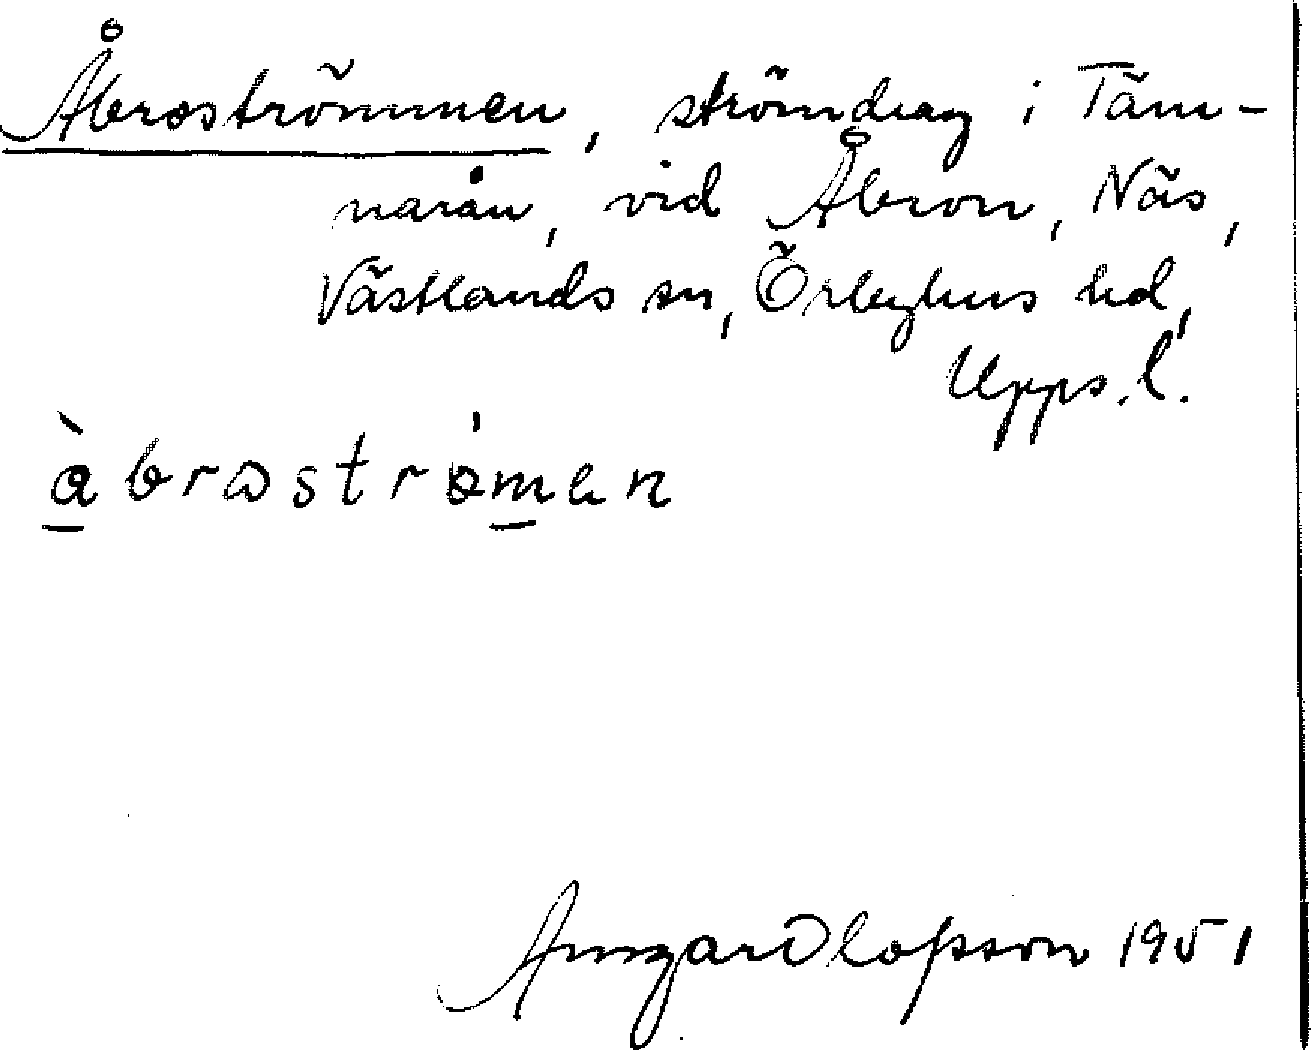 Åbroströmmen, strömdrag i Täm-
narån, vid Åbron, Näs,
Västlands sn, Örbyhus hd,
Upps. l.
àbroströmen
Ansgar Olofsson 1951